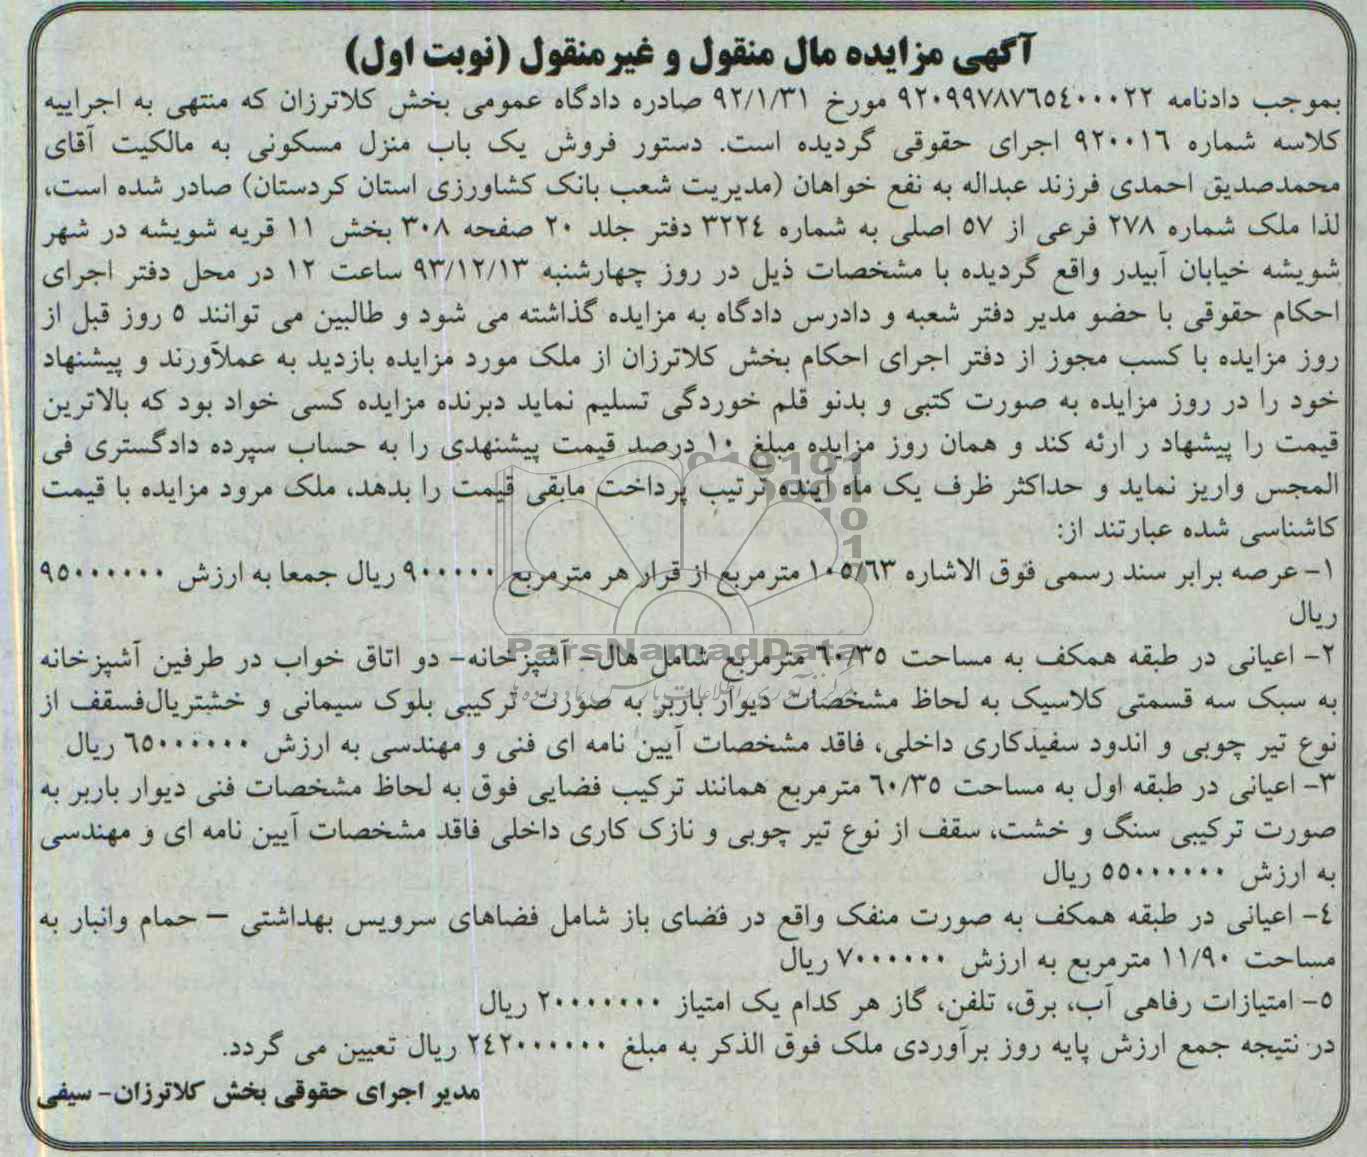 آگهی مزایده مال منقول و غیرمنقول (نوبت اول)
بموجب دادنامه ۹۲۰۹۹۷۸۷۶۵۴۰۰۰۲۲ مورخ ۹۲/۱/۳۱ صادره دادگاه عمومی بخش کلاترزان که منتهی به اجراییه
کلاسه شماره ۹۲۰۰۱۶ اجرای حقوقی گردیده است. دستور فروش یک باب منزل مسکونی به مالکیت آقای
محمدصدیق احمدی فرزند عبداله به نفع خواهان (مدیریت شعب بانک کشاورزی استان کردستان) صادر شده است،
لذا ملک شماره ۲۷۸ فرعی از ۵۷ اصلی به شماره ۳۲۲٤ دفتر جلد ۲۰ صفحه ۳۰۸ بخش ۱۱ قریه شویشه در شهر
شویشه خیابان آبیدر واقع گردیده با مشخصات ذیل در روز چهارشنبه ۹۳/۱۲/۱۳ ساعت ۱۲ در محل دفتر اجرای
احکام حقوقی با حضو مدیر دفتر شعبه و دادرس دادگاه به مزایده گذاشته می شود و طالبین می توانند ۵ روز قبل از
روز مزایده با کسب مجوز از دفتر اجرای احکام بخش کلاترزان از ملک مورد مزایده بازدید به عملآورند و پیشنهاد
خود را در روز مزایده به صورت کتبی و بدنو قلم خوردگی تسلیم نماید دبرنده مزایده کسی خواد بود که بالاترین
قیمت را پیشهاد ر ارئه کند و همان روز مزایده مبلغ ۱۰ درصد قیمت پیشنهدی را به حساب سپرده دادگستری فی
المجس واریز نماید و حداکثر ظرف یک ماه آینده ترتیب پرداخت مابقی قیمت را بدهد، ملک مرود مزایده با قیمت
کاشناسی شده عبارتند از:
۱- عرصه برابر سند رسمی فوق الاشاره ۱۰۵/۶۳ مترمربع از قرار هر مترمربع ۹۰۰۰۰۰ ریال جمعا به ارزش ۹۵۰۰۰۰۰۰
ریال
۲- اعیانی در طبقه همکف به مساحت ۶۰/۳۵ مترمربع شامل هال- آشپزخانه- دو اتاق خواب در طرفین آشپزخانه
به سبک سه قسمتی کلاسیک به لحاظ مشخصات دیوار باربر به صورت ترکیبی بلوک سیمانی و خشتریال‌فسقف از
نوع تیر چوبی و اندود سفیدکاری داخلی، فاقد مشخصات آیین نامه ای فنی و مهندسی به ارزش ۶۵۰۰۰۰۰۰ ریال
۳- اعیانی در طبقه اول به مساحت ۶۰/۳۵ مترمربع همانند ترکیب فضایی فوق به لحاظ مشخصات فنی دیوار باربر به
صورت ترکیبی سنگ و خشت، سقف از نوع تیر چوبی و نازک کاری داخلی فاقد مشخصات آیین نامه ای و مهندسی
به ارزش ۵۵۰۰۰۰۰۰ ریال
٤- اعیانی در طبقه همکف به صورت منفک واقع در فضای باز شامل فضاهای سرویس بهداشتی – حمام وانبار به
مساحت ۱۱/۹۰ مترمربع به ارزش ۷۰۰۰۰۰۰ ریال
۵- امتیازات رفاهی آب، برق، تلفن، گاز هر کدام یک امتیاز ۲۰۰۰۰۰۰۰ ریال
در نتیجه جمع ارزش پایه روز برآوردی ملک فوق الذکر به مبلغ ۲٤۲۰۰۰۰۰۰ ریال تعیین می گردد.
مدیر اجرای حقوقی بخش کلاترزان- سیفی
ParsNamadData